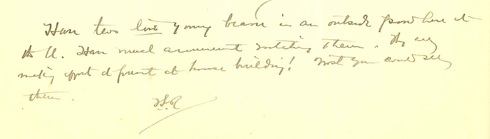 Have two live young beavers in an outside pond here at
the U. Have much amusement watching them. They are
making effort at present at house building! Wish you could see
them.